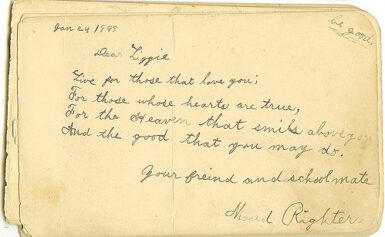 Jan 24 1895
be good.
Dear Lizzie
Live for those that love you;
For those whose hearts are true,
For the Heaven that smils above you
And the good that you may do.
Your freind and schoolmate
Maud Righter.